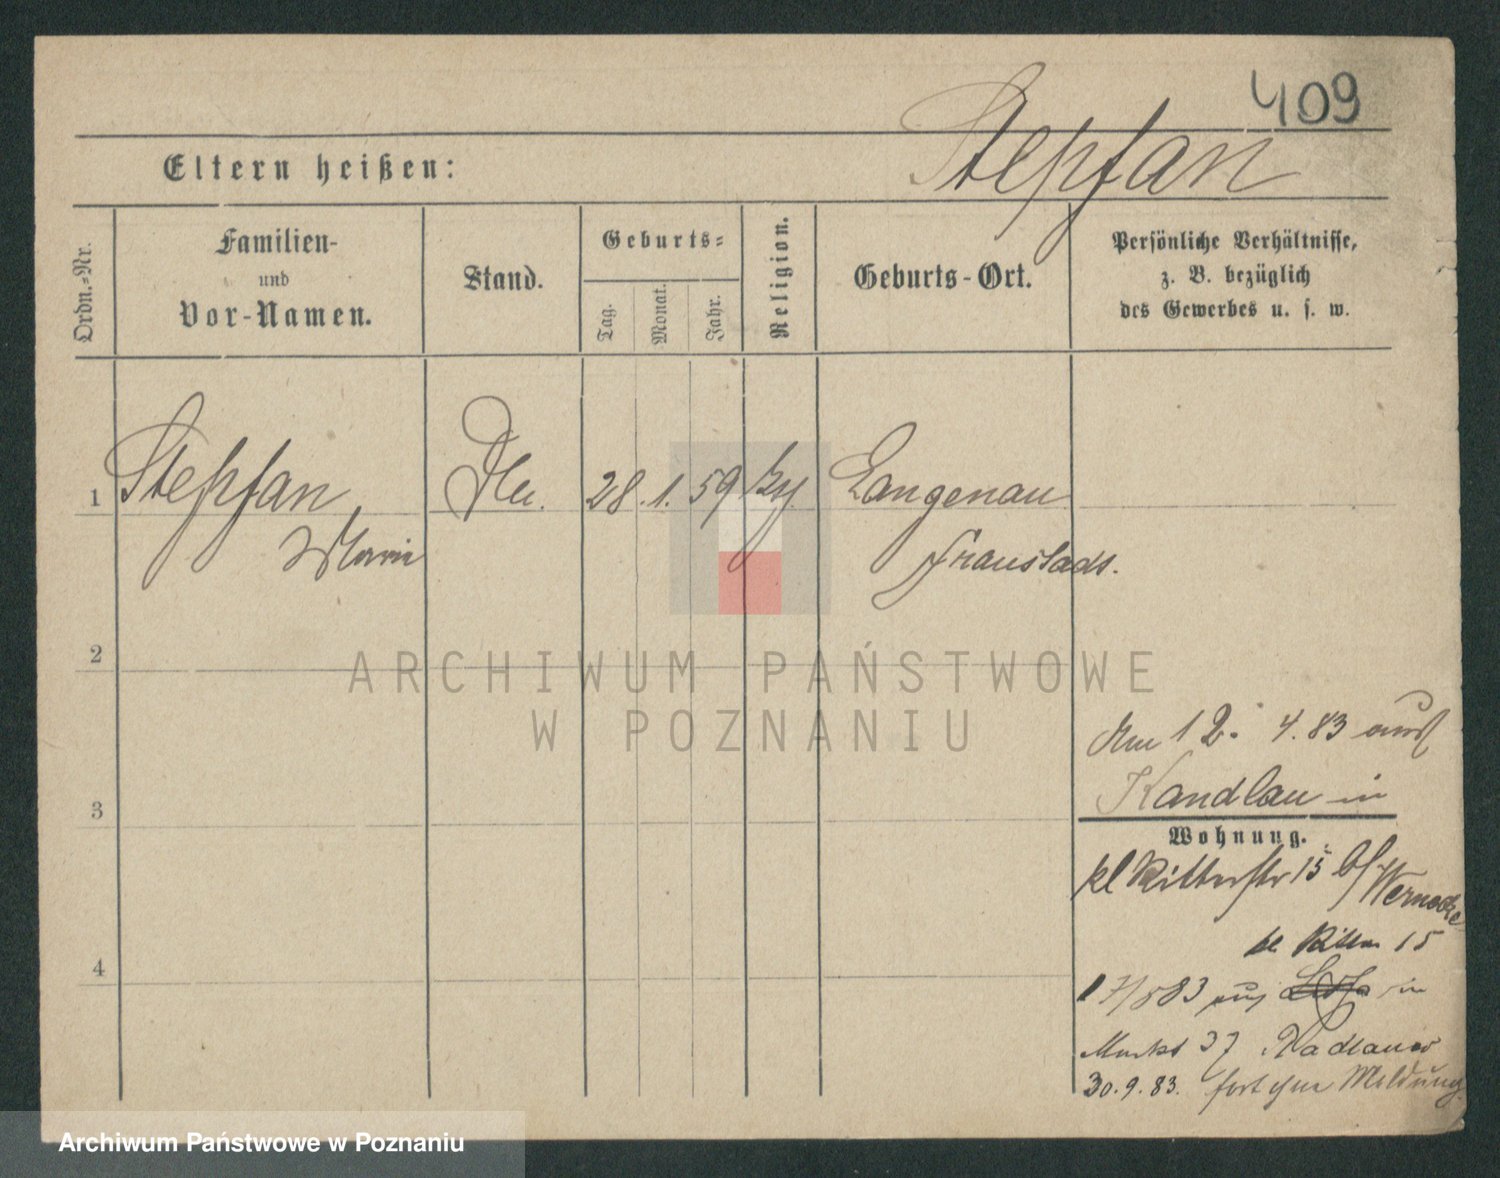 409
Stepfan
Eltern heißen:
Ordn.-Nr.
Familien-
und
Vor-Namen.
Stand.
Geburts-
Tag.
Monat.
Jahr.
Religion.
Geburts-Ort.
Persönliche Verhältnisse,
z. B. bezüglich
des Gewerbes u. s. w.
1
Stepfan
Marie
28. 1. 59
Langenau
Fraustadt.
2
3
4
Am 12. 4. 83 aus
Kandlau in
Wohnung.
kl Ritterstr 15 b/ Wernecke
kl Ritter 15
17/583 aus in
Markt 37 Radlauer
30.9.83. fort ohne Meldung
ARCHIWUM PAŃSTWOWE
W POZNANIU
Archiwum Państwowe w Poznaniu